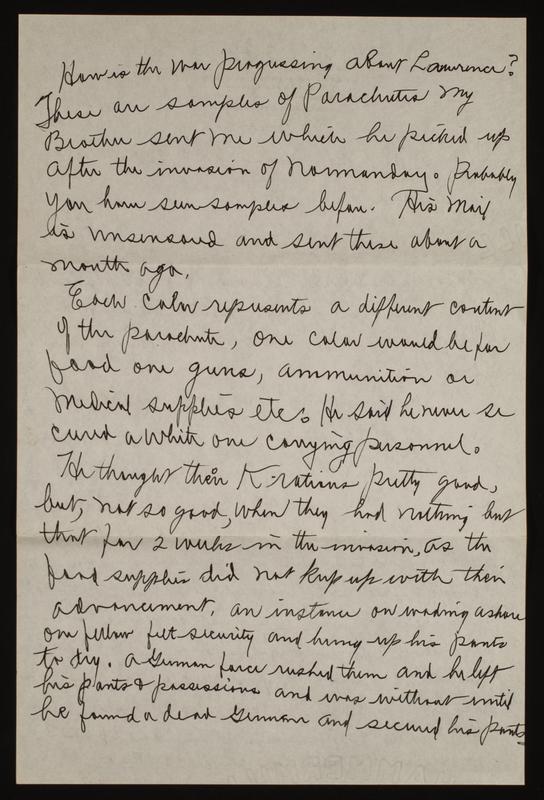 How is the war progressing about Lawrence?
These are samples of Parachutes my
Brother sent me which he picked up
after the invasion of Normanday. Probably
you have seen samples before. His Mail
is unsensored and sent these about a
month ago.
Each Color repusents a different content
of the parachute, one color would be for
food one guns, ammunition or
Medical supplies etc. He said he never se
cured a white one carrying personnel.
He thought their K-rations pretty good,
but, not so good, when they had nothing but
that for 2 weeks in the invasion, as the
food supplies did not keep up with their
advancement. an instance on wading ashore
one fellow felt security and hung up his pants
to dry. a German force rushed them and he left
his pants & possessions and was without until
he found a dead German and secured his pants